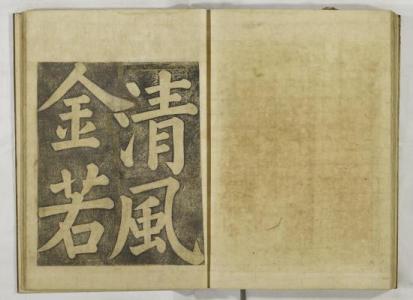 清風
金若